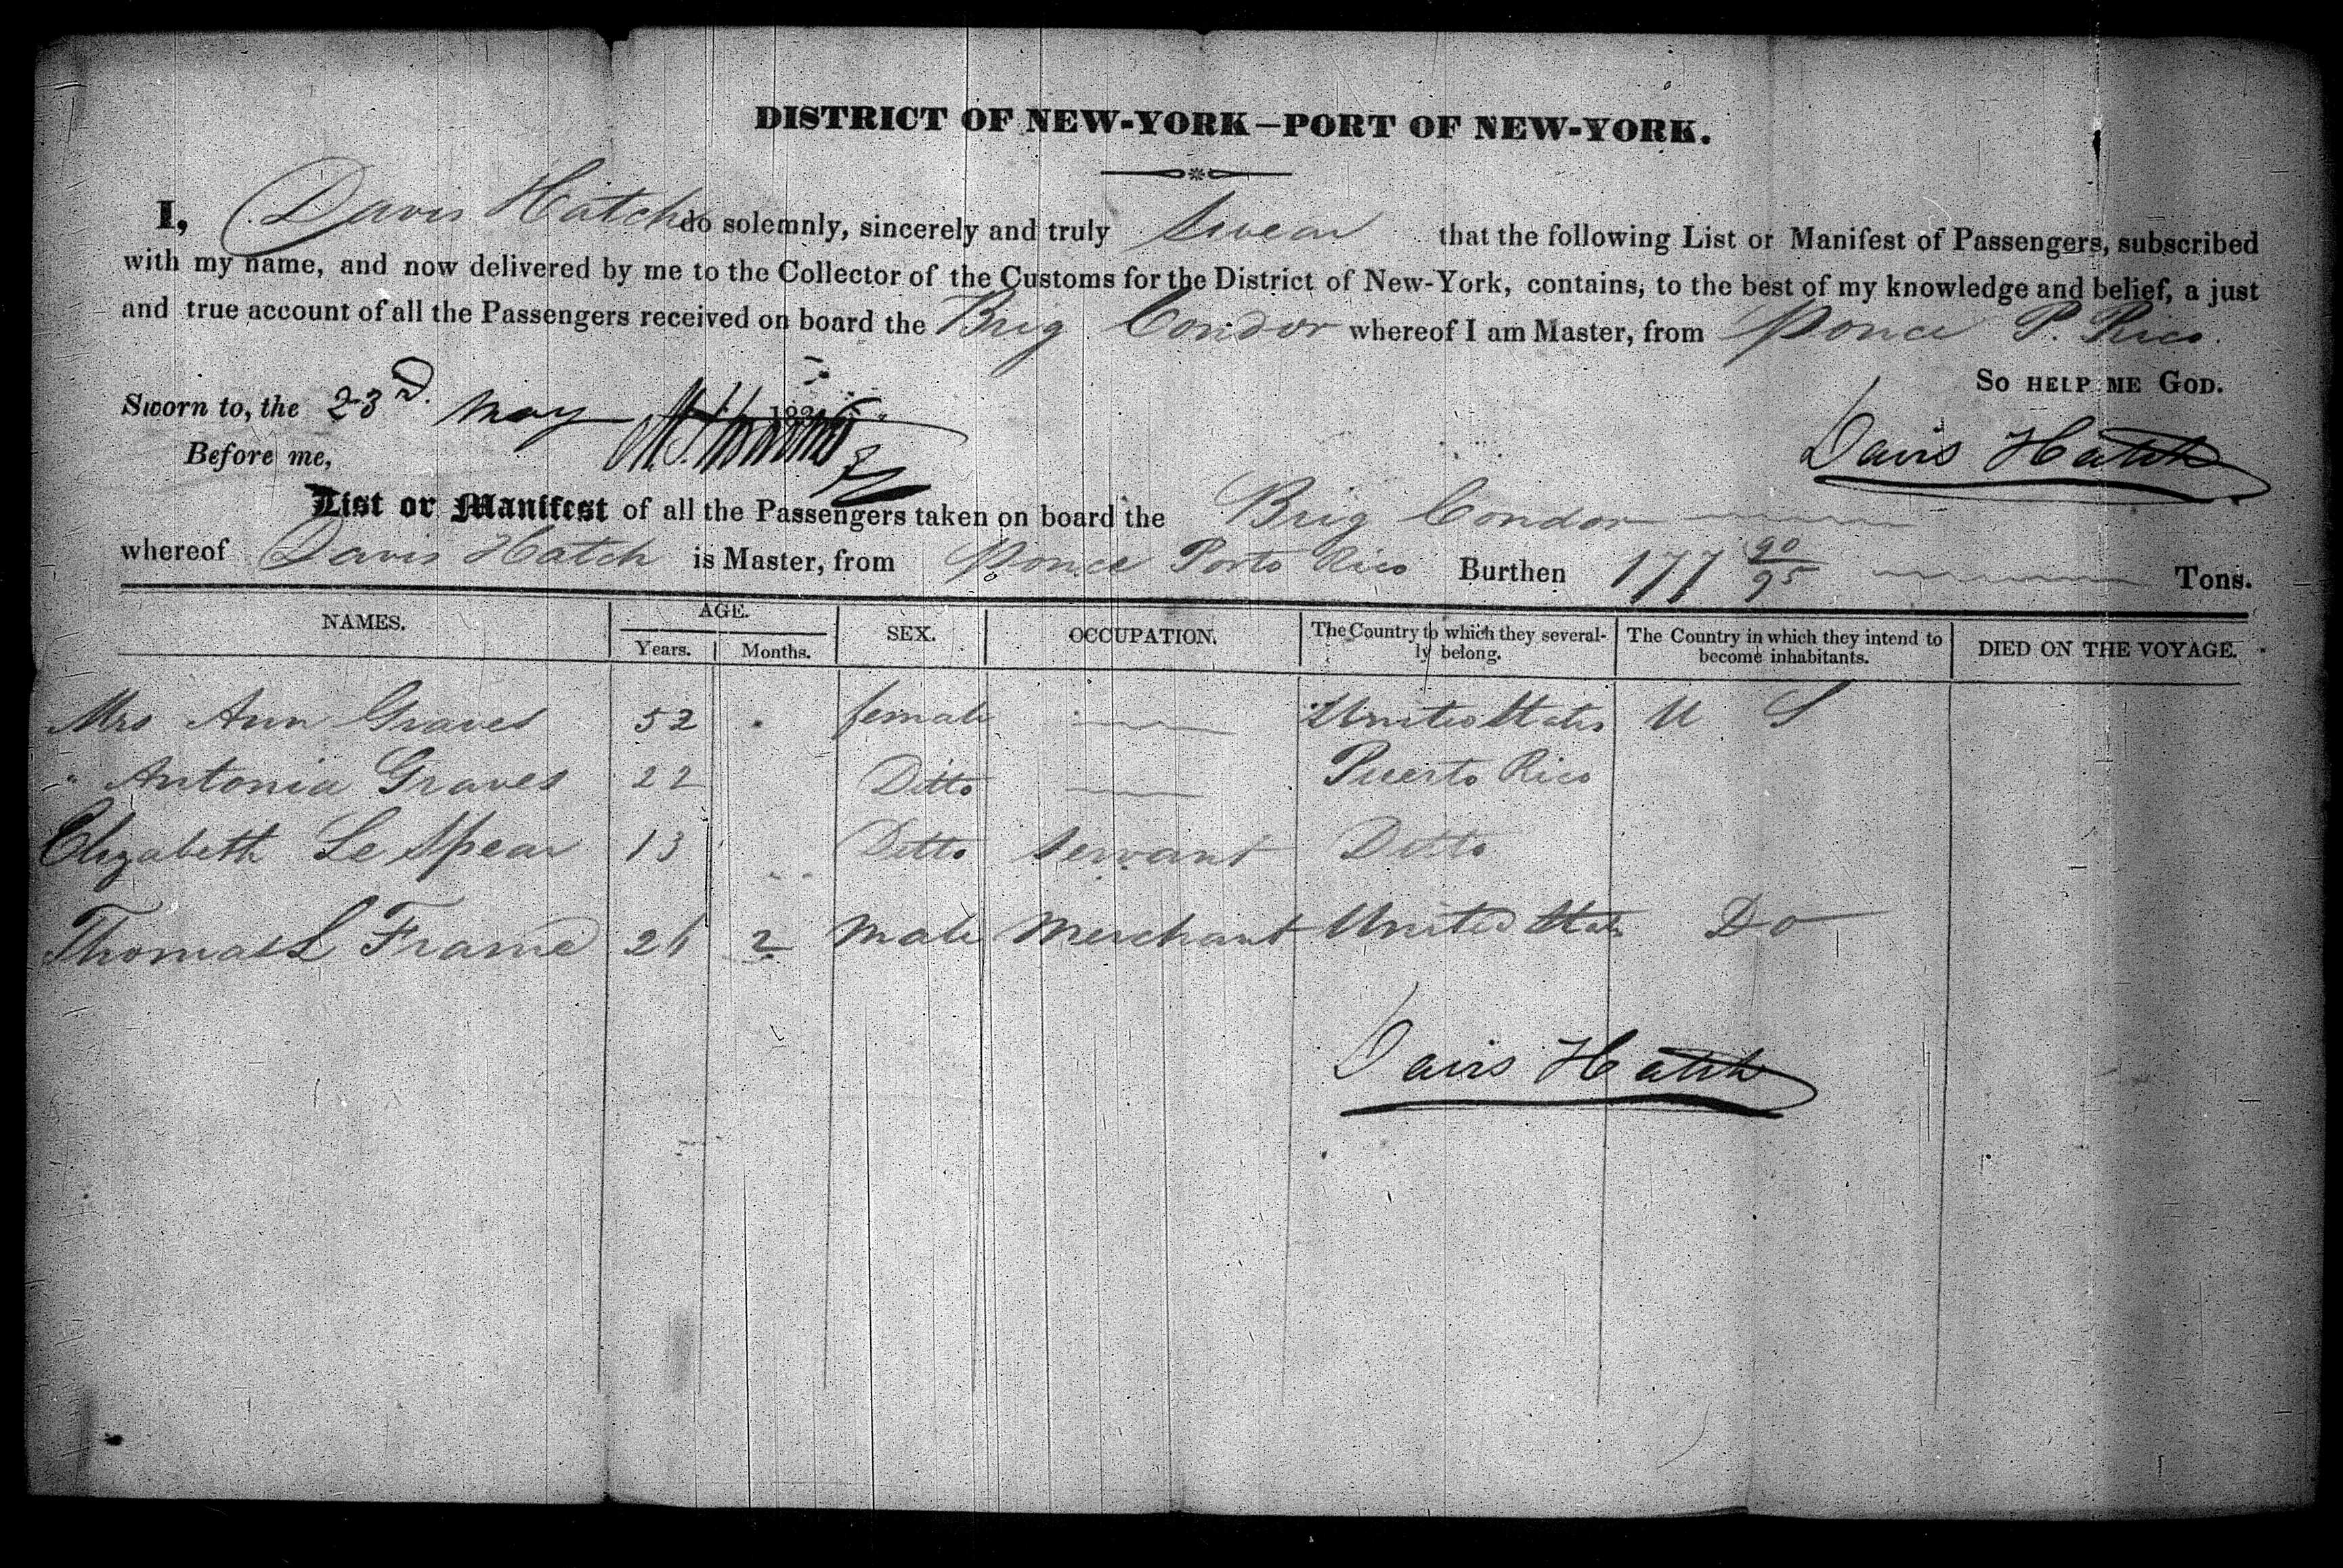 DISTRICT OF NEW-YORK—PORT OF NEW-YORK.
I, Davis Hatch do solemnly, sincerely and truly swear that the following List or Manifest of Passengers, subscribed
with my name, and now delivered by me to the Collector of the Customs for the District of New-York, contains, to the best of my knowledge and belief, a just
and true account of all the Passengers received on board the Brig Condor whereof I am Master, from Ponce P. Rico.
So help me God.
Sworn to, the 23d. May 183
Davis Hatch
Before me,
List or Manifest of all the Passengers taken on board the Brig Condor
whereof Davis Hatch is Master, from Ponce Porto Rico Burthen 177 90/95 Tons.
NAMES. AGE. Years. Months. SEX. OCCUPATION. The Country to which they severally belong. The Country in which they intend to become inhabitants. DIED ON THE VOYAGE.
Mrs Ann Graves 52 female United States U S
" Antonia Graves 22 Ditto Puerto Rico
Elizabeth Le Spear 13 Ditto Servant Ditto
Thomas L Frame 26 2 Male Merchant United States Do
Davis Hatch